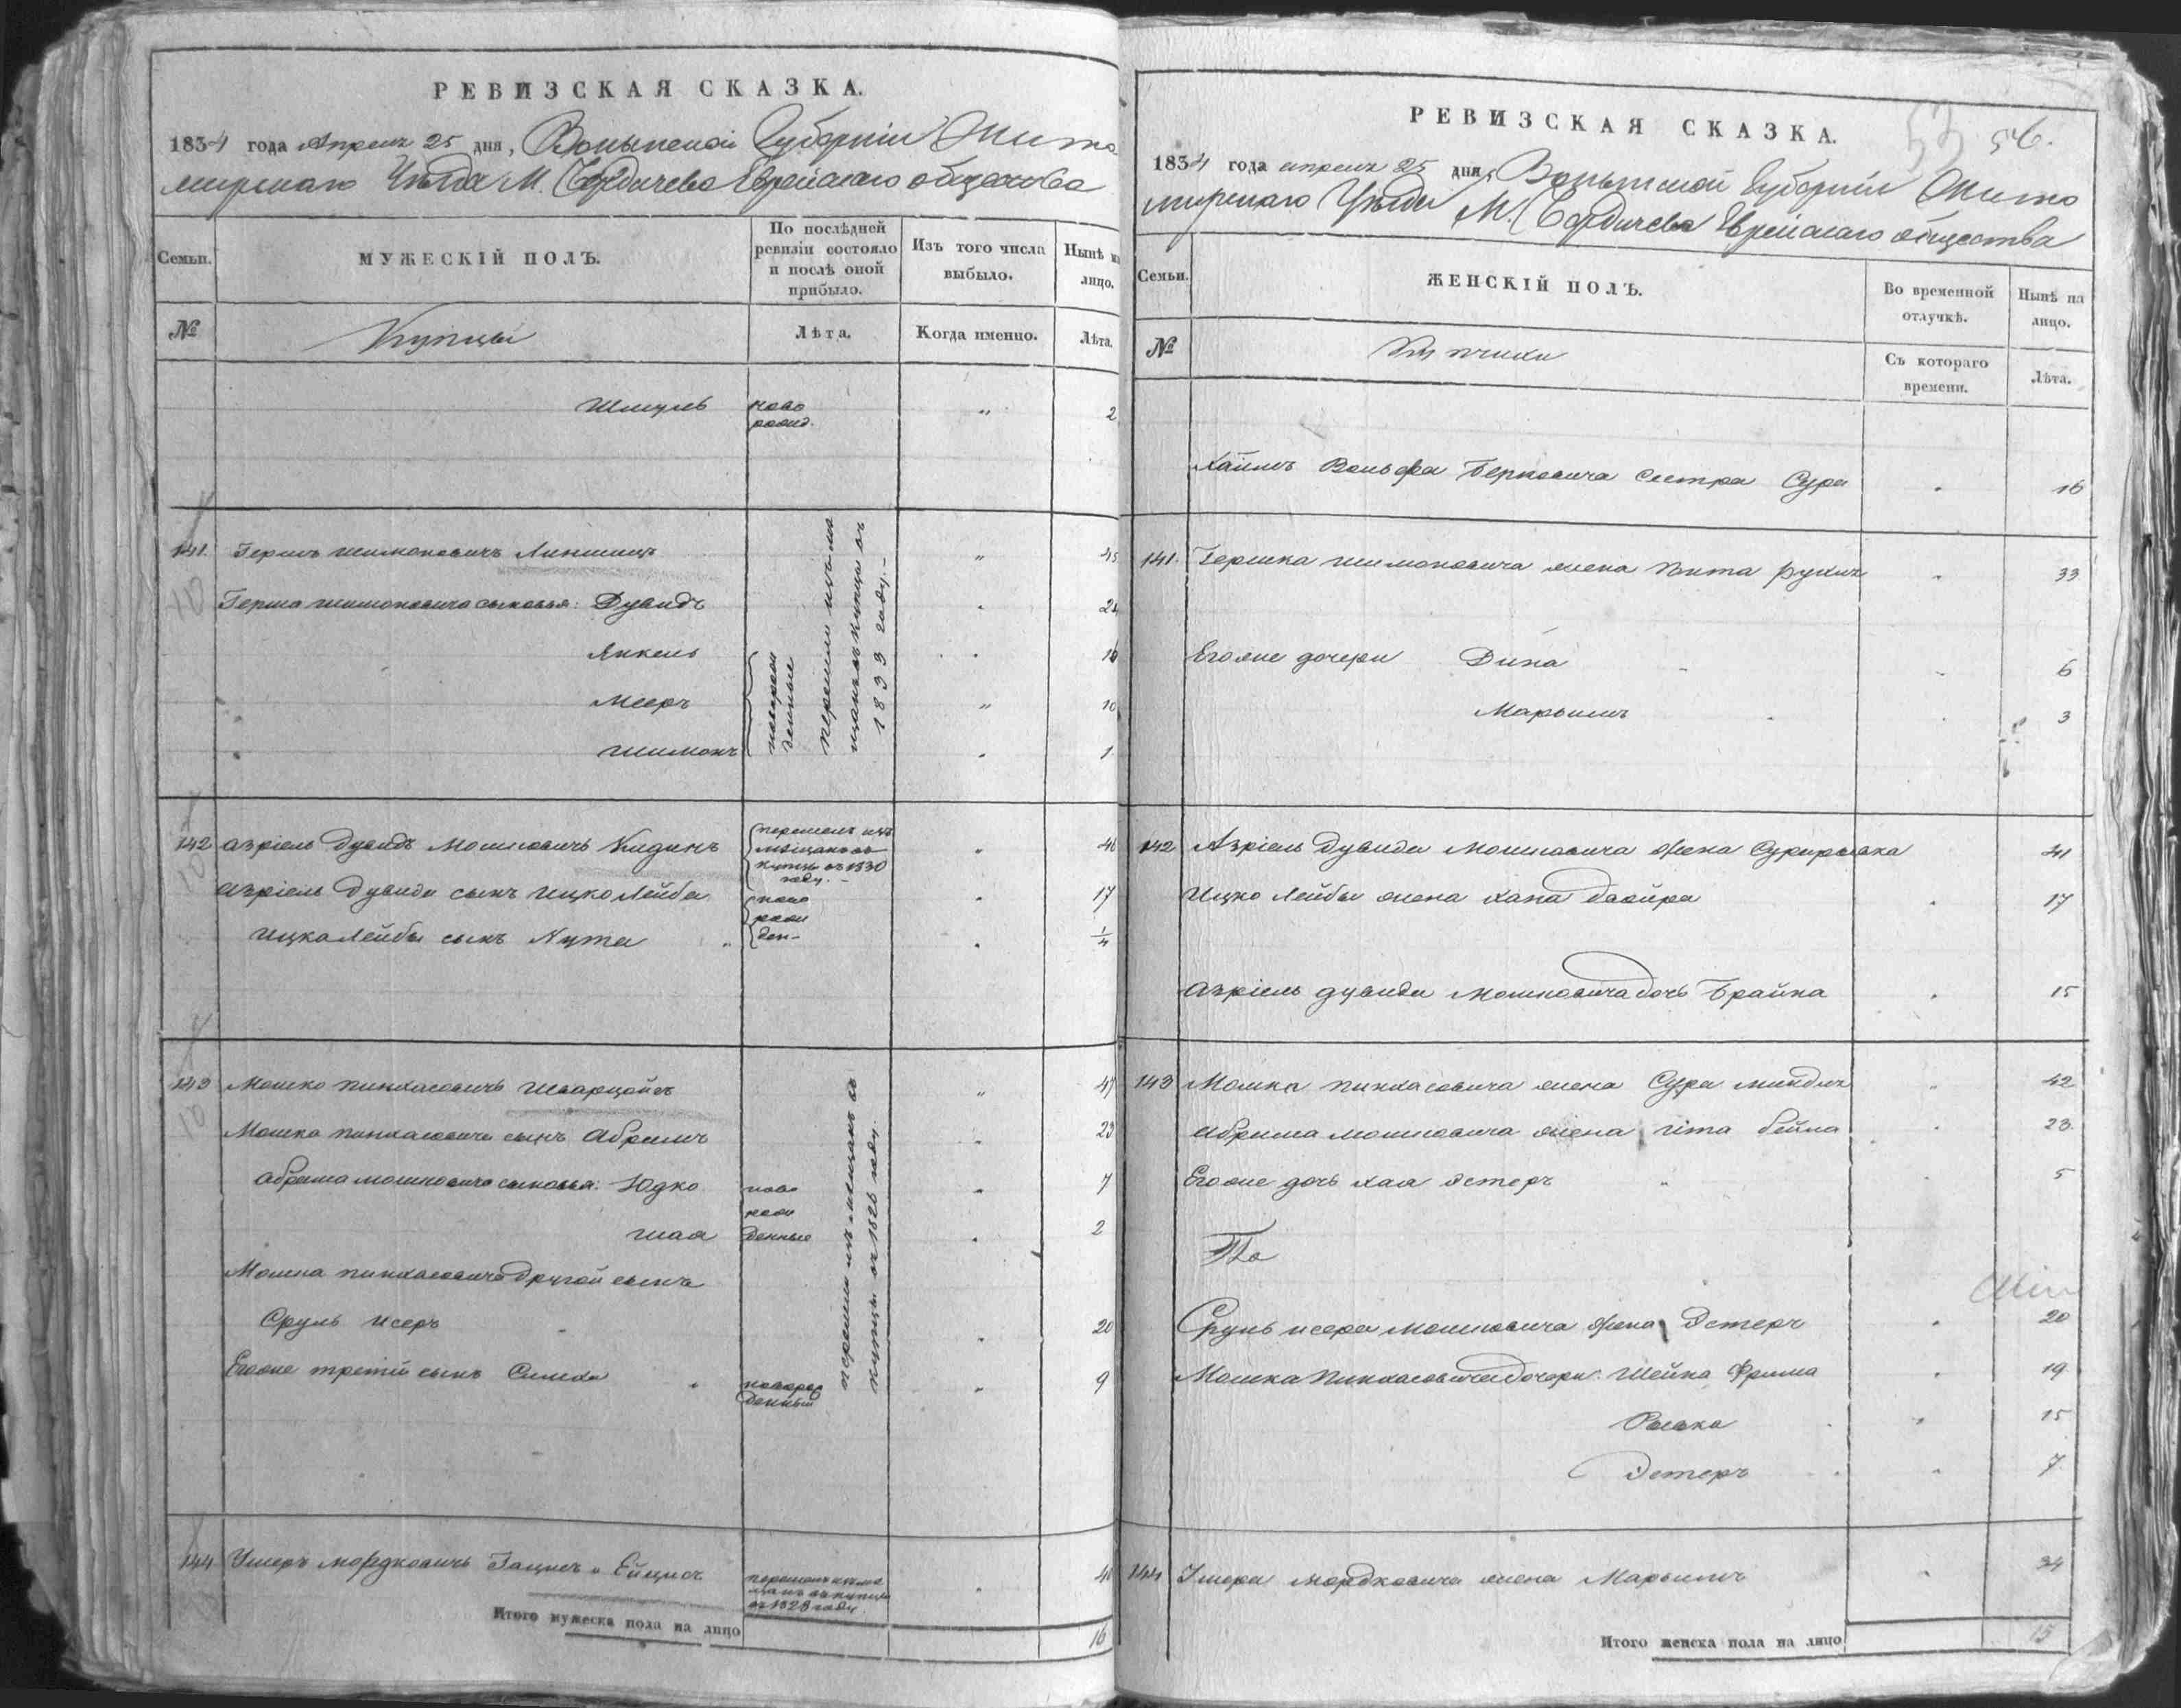 РЕВИЗСКАЯ СКАЗКА.
1834 года Апреля 25 дня, Волынской Губерніи Жито
мирскаго Уѣзда М. Бердичева Еврейскаго общества
Семьи.
МУЖЕСКІЙ ПОЛЪ.
По послѣдней
ревизіи состояло
и послѣ оной
прибыло.
Изъ того числа
выбыло.
Нынѣ на
лицо.
№
Купцы
Лѣта.
Когда именно.
Лѣта.
Шмуль ново рожд. " 2
141. Гершъ Шимоновичъ " 45
Герша Шимоновича сыновья: Дувидъ " 24
Янкель " 16
Мееръ " 10
Шимонъ " 1
новорож
денные
перешли изъ мѣ
щанъ въ купцы въ
1833 году.-
142 Азріель Дувидъ Мошковичъ перешелъ изъ мѣщанъ въ купцы въ 1830 году.- " 40
Азріель Дувида сынъ Ицко Лейба ново " 17
рож
Ицка Лейбы сынъ Нута ден- " 1/4
143 Мошко Пинхасовичъ " 47
Мошка Пинхасовича сынъ Абрамъ " 23
Абрама Мошковича сыновья: Юдко ново " 7
рож
Шая денные " 2
Мошка Пинхасовича другой сынъ
Сруль Исеръ " 20
Егоже третій сынъ Симха новорож денный " 9
перешли изъ мѣщанъ въ
купцы въ 1826 году.
144 Ушеръ Мордковичъ перешелъ изъ мѣ щанъ въ купцы въ 1828 году " 40
Итого мужеска пола на лицо 16
РЕВИЗСКАЯ СКАЗКА.
53 56.
1834 года апреля 25 дня, Волынской Губерніи Жито
мирскаго Уѣзда М. Бердичева Еврейскаго общества
Семьи.
ЖЕНСКІЙ ПОЛЪ.
Во временной
отлучкѣ.
Нынѣ на
лицо.
№
Купчихи
Съ котораго
времени.
Лѣта.
Хаимъ Вольфа Берковича сестра Сура " 16
141. Гершка Шимоновича жена Рухля " 33
Егоже дочери Дина " 6
Марьямъ " 3
142 Азріель Дувида Мошковича жена Сура Ривка 41
Ицко Лейбы жена Хана Двойра " 17
Азріель Дувида Мошковича дочь Брайна " 15
143 Мошка Пинхасовича жена Сура Миндля " 42
Абрама Мошковича жена Гіта Бейла " 23
Егоже дочь Хая Эстеръ " 5
Сруль Исера Мошковича жена Эстеръ " 20
Мошка Пинхасовича дочери: Шейна Фрима " 19
Ривка " 15
Эстеръ " 7
144 Ушера Мордковича жена Марьямъ " 34
Итого женска пола на лицо 15